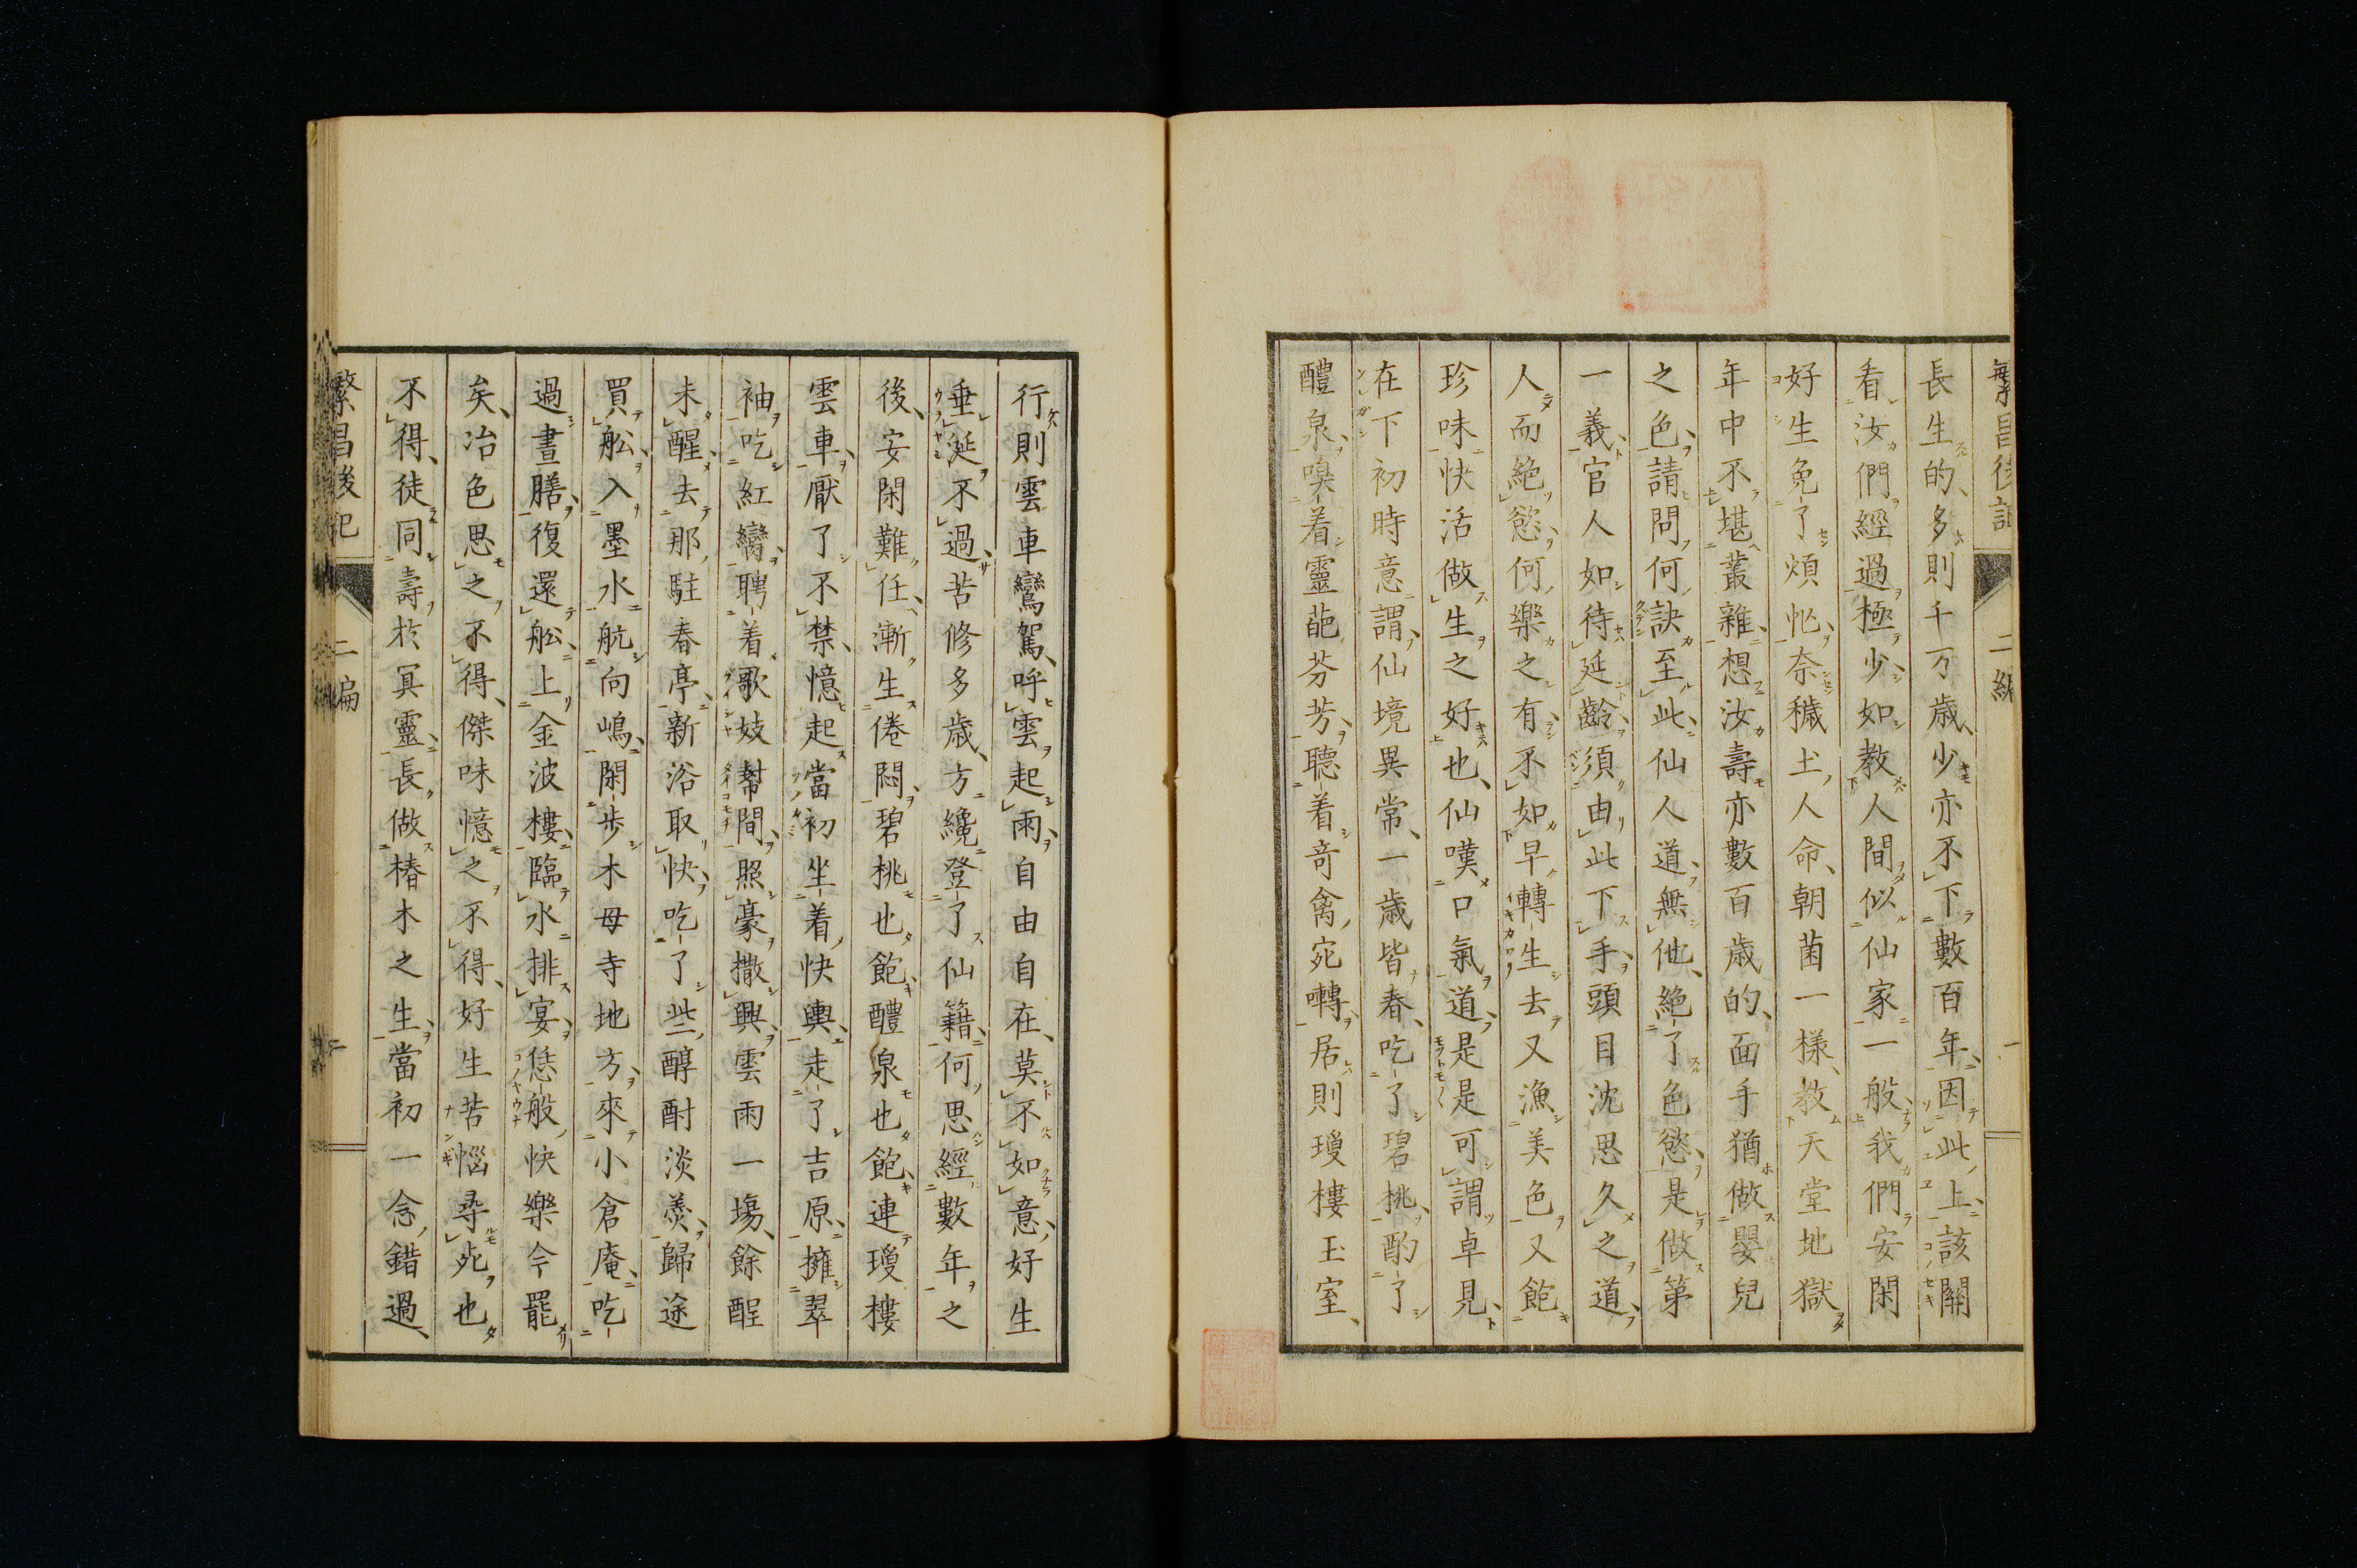 繁昌後記 二編 一
長生的、多則千万歳、少亦不下數百年、因此上、該關
看汝們經過極少、如教人間似仙家一般、我們安閑
好生免了煩忙、奈穢土人命、朝菌一樣、教天堂地獄
年中不堪叢雜、想汝壽亦數百歳的、面手猶做嬰兒
之色、請問何訣至此、仙人道、無他、絶了色慾、是做第
一義、官人如待延齡、須由此下手、頭目沈思久之道、
人而絶慾、何樂之有、不如早轉生去又漁美色又飽
珍味快活做生之好也、仙嘆口氣道、是是可謂卓見、
在下初時意謂、仙境異常、一歳皆春、吃了碧桃、酌了
醴泉、嗅着靈葩芬芳、聽着奇禽宛囀、居則瓊樓玉室、
行則雲車鸞駕、呼雲起雨、自由自在、莫不如意、好生
垂延不過、苦修多歳、方纔登了仙籍、何思經數年之
後、安閑難任、漸生倦悶、碧桃也飽、醴泉也飽、連瓊樓
雲車、厭了不禁、憶起當初坐着快輿、走了吉原、擁翠
袖吃紅、蠻聘着歌妓幇間、照豪撒興、雲雨一塲、餘酲
未醒、去那駐春亭、新浴取快、吃了些醇酎淡羮、歸途
買舩、入墨水航向嶋、閑歩木母寺地方、來小倉庵、吃
過晝膳、復還舩、上金波樓、臨水排宴、恁般快樂今罷
矣、冶色思之不得、傑味憶之不得、好生苦惱、尋死也
不得、徒同壽於冥靈、長做椿木之生、當初一念錯過、
繁昌後記 二編 二